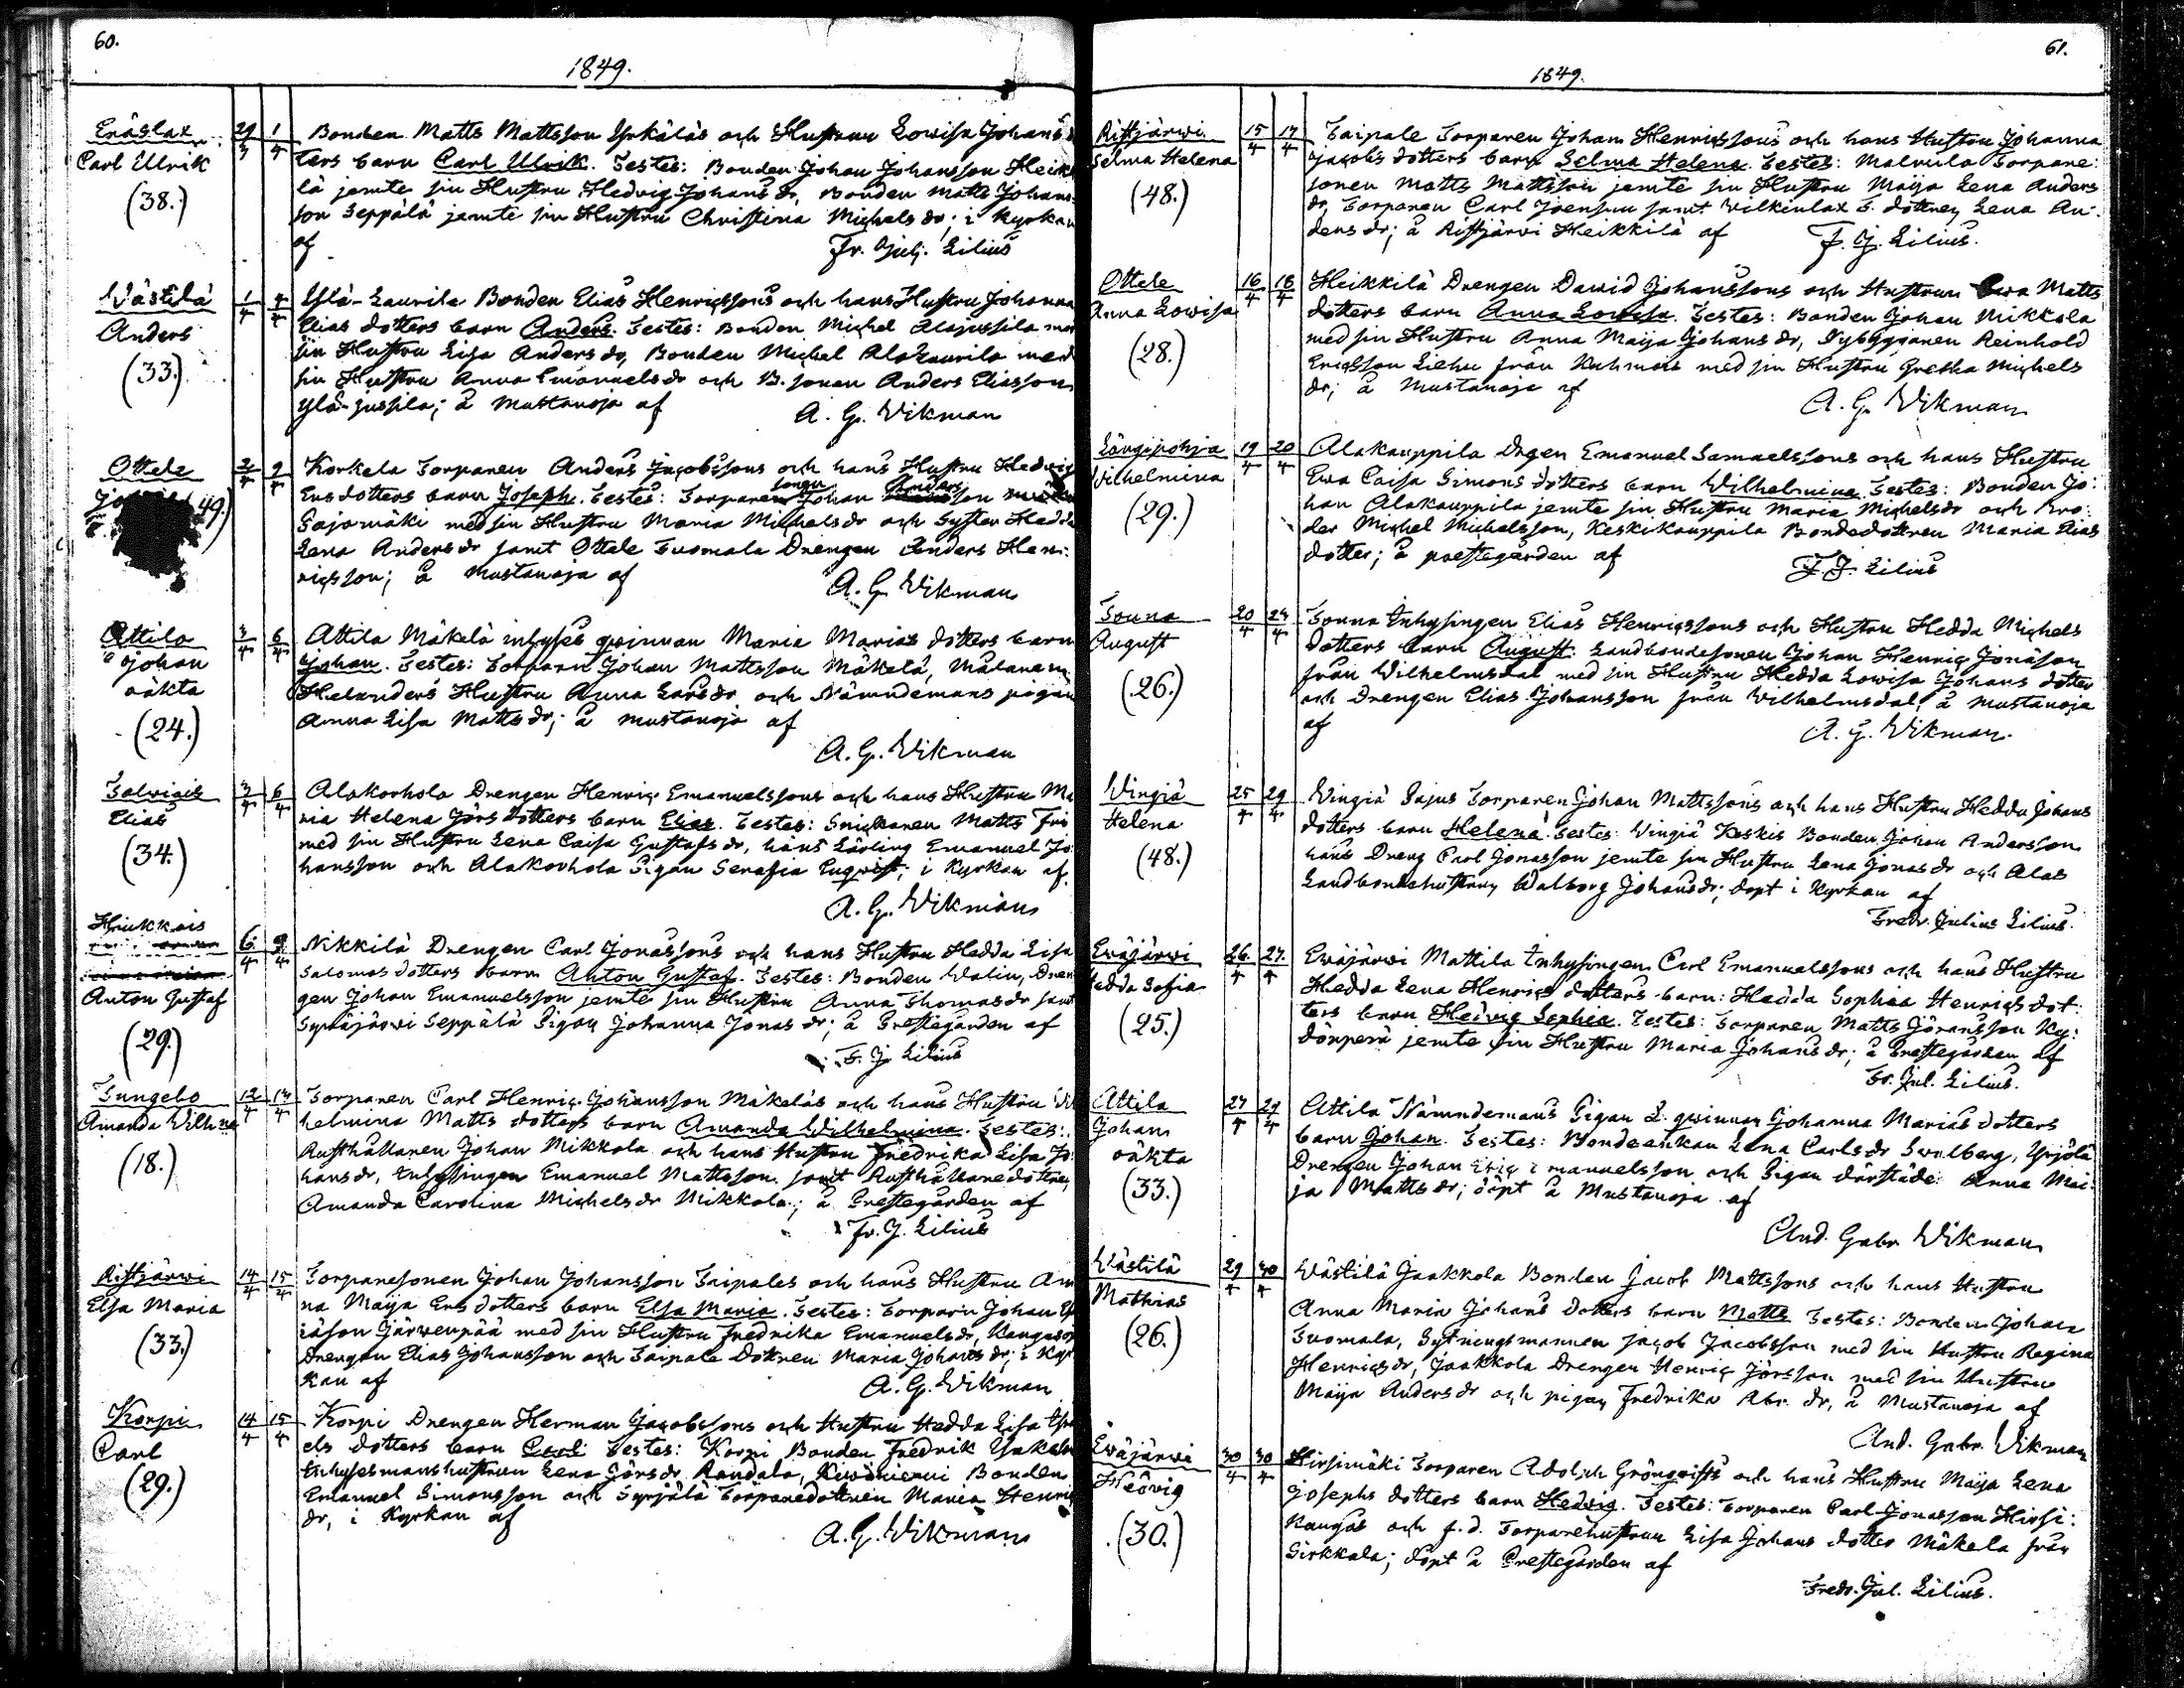 60.
1849.
Eräslax
Carl Ulrik
(38.)
29/3 1/4
Bonden Matts Mattsson Yrkäläs och Hustrun Lowisa Johans
ters barn Carl Ulrik. Testes: Bonden Johan Johansson Heik
lä jemte sin Hustru Hedvig Johans dr, Bonden Matts Johans
son Seppälä jemte sin Hustru Christina Michels dr; i Kyrkan
af Fr. Julj. Lilius
Wästilä
Anders
(33.)
1/4 4/4
Ylä-Laurila Bonden Elias Henricssons och hans Hustru Johanna
Elias dotters barn Anders. Testes: Bonden Michel Alajussila med
sin Hustru Lisa Anders dr, Bonden Michel Alalaurila med
sin Hustru Anna Emanuels dr och B. sonen Anders Eliasson
Ylä-jussila; å Mustanoja af A. G. Wikman
Ottele
49.)
2/4 9/4
Korkela Torparen Anders Jacobssons och hans Hustru Hedvig
Ers dotters barn Joseph. Testes: Torparesonen Johan Andersson
Pajomäki med sin Hustru Maria Michels dr och Syster Hedda
Lena Anders dr samt Ottele Tuomala Drengen Anders Hen-
ricsson; å Mustanoja af A. G. Wikman
Attila
Johan
oäkta
(24.)
3/4 6/4
Attila Mäkelä inhyses qwinnan Maria Marias dotters barn
Johan. Testes: Torparn Johan Mattsson Mäkelä, Målaren
Helanders Hustru Anna Lars dr och Nämndemans pigan
Anna Lisa Matts dr; å Mustanoja af
A. G. Wikman
Talviais
Elias
(34.)
3/4 6/4
Alakorhola Drengen Henric Emanuelssons och hans Hustru Ma
ria Helena Görs dotters barn Elias. Testes: Snickaren Matts Fri
med sin Hustru Lena Caisa Gustafs dr, hans Lärling Emanuel Jo
hansson och Alakorhola Pigan Serafia Enqvist; i Kyrkan af
A. G. Wikman
Heikkois
Anton Gustaf
(29.)
6/4 9/4
Nikkilä Drengen Carl Jonassons och hans Hustru Hedda Lisa
Salomos dotters barn Anton Gustaf. Testes: Bonden Walin, Dren
gen Johan Emanuelsson jemte sin Hustru Anna Thomas dr samt
Synsjärwi Seppälä Pigan Johanna Jonas dr; å Prestegården af
F. J. Lilius
Tungebo
Amanda Wilhna
(18.)
12/4 14/4
Torparen Carl Henric Johansson Mäkeläs och hans Hustru Wil
helmina Matts dotters barn Amanda Wilhelmina. Testes:
Rusthållaren Johan Mikkola och hans Hustru Fredrika Lisa Jo
hans dr, Inhysingen Emanuel Mattsson samt Rusthållaredottren
Amanda Carolina Michels dr Mikkola; å Prestegården af
Fr. J. Lilius
Ristjärwi
Elsa Maria
(33.)
14/4 15/4
Torparesonen Johan Johansson Taipales och hans Hustru An
na Maija Ers dotters barn Elsa Maria. Testes: Torparn Johan
iäson Järwenpää med sin Hustru Fredrika Emanuels dr, Kangas
Drengen Elias Johansson och Taipale Dottren Maria Johans dr; i Kyr
kan af A. G. Wikman
Korpi
Carl
(29.)
14/4 15/4
Korpi Drengen Herman Jacobssons och Hustru Hedda Lisa Isra
els dotters barn Carl. Testes: Korpi Bonden Fredrik
Inhysesmanshustrun Lena Görs dr Randala, Kuwäniemi Bonden
Emanuel Simonsson och Syrjälä Torparedottren Maria Henrics
dr, i Kyrkan af A. G. Wikman
61.
1849.
Ristjärwi
Selma Helena
(48.)
15/4 17/4
Taipale Torparen Johan Henricssons och hans Hustru Johanna
Jacobs dotters barn Selma Helena. Testes: Malmila Torpare-
sonen Matts Mattsson jemte sin Hustru Maija Lena Anders
dr, Torparen Carl Joensuu samt Wilkinlax T. dottren Lena An-
ders dr; å Ristjärwi Heikkilä af F. J. Lilius.
Ottele
Anna Lowisa
(28.)
16/4 18/4
Heikkilä Drengen Dawid Johanssons och Hustrun Ewa Matts
dotters barn Anna Lowisa. Testes: Bonden Johan Mikkola
med sin Hustru Anna Maija Johans dr, Nybyggaren Reinhold
Ericsson Liehu från Kuhmois med sin Hustru Gretha Michels
dr; å Mustanoja af
A. G. Wikman
Längipohja
Wilhelmina
(29.)
19/4 20/4
Alakauppila Drgen Emanuel Samuelssons och hans Hustru
Ewa Caisa Simons dotters barn Wilhelmina. Testes: Bonden Jo-
han Alakauppila jemte sin Hustru Maria Michels dr och Bro-
der Michel Michelsson, Keskikauppila Bondedottren Maria Elias
dotter; å prestegården af
F. J. Lilius
Touna
August
(26.)
20/4 24/4
Touna Inhysingen Elias Henricssons och Hustru Hedda Michels
dotters barn August. Landbondesonen Johan Henric Jonäson
från Wilhelmsdal med sin Hustru Hedda Lowisa Johans dotter
och Drengen Elias Johansson från Wilhelmsdal; å Mustanoja
af A. G. Wikman.
Wingiä
Helena
(48.)
25/4 29/4
Wingiä Pajus Torparen Johan Mattssons och hans Hustru Hedda Johans
dotters barn Helena. Testes: Wingiä Keskis Bonden Johan Andersson
hans Dreng Carl Jonasson jemte sin Hustru Lena Jonas dr och Alas
Landbondehustrun Walborg Johans dr; döpt i Kyrkan af
Fredr. Julius Lilius.
Ewäjärwi
Hedda Sofia
(25.)
26/4 27/4
Ewäjärwi Mattila Inhysingen Carl Emanuelssons och hans Hustru
Hedda Lena Henrics dotters barn: Hedda Sophia Henrics dot-
ters barn Hedvig Sophia. Testes: Torparen Matts Göransson Ky-
dönperä jemte sin Hustru Maria Johans dr; å Prestegården af
Fr. Jul. Lilius.
Attila
Johan
oäkta
(33.)
27/4 29/4
Attila Nämndemans Pigan L. qwinnan Johanna Marias dotters
barn Johan. Testes: Bondeenkan Lena Carls dr Swalberg, Yrjölä
Drengen Johan Eric Emanuelsson och Pigan därstädes Anna Mai-
ja Matts dr; döpt å Mustanoja af
And. Gabr. Wikman
Wästilä
Mathias
(26.)
29/4 30/4
Wästilä Jaakkola Bonden Jacob Mattssons och hans Hustru
Anna Maria Johans dotters barn Matts. Testes: Bonden Johan
Tuomala, Sytningsmannen Jacob Jacobsson med sin Hustru Regina
Henrics dr, Jaakkola Drengen Henric Jörsson med sin Hustru
Maija Anders dr och pigan Fredrika Abr. dr, å Mustanoja af
And. Gabr. Wikman
Ewäjärwi
Hedvig
(30.)
30/4 30/4
Hirsimäki Torparen Adolph Grönqvists och hans Hustru Maija Lena
Josephs dotters barn Hedvig. Testes: Torparen Carl Jonasson Hirsi-
kangas och f.d. Torparehustrun Lisa Johans dotter Mäkelä från
Sirkkala; döpt å Prestegården af
Fredr. Jul. Lilius.